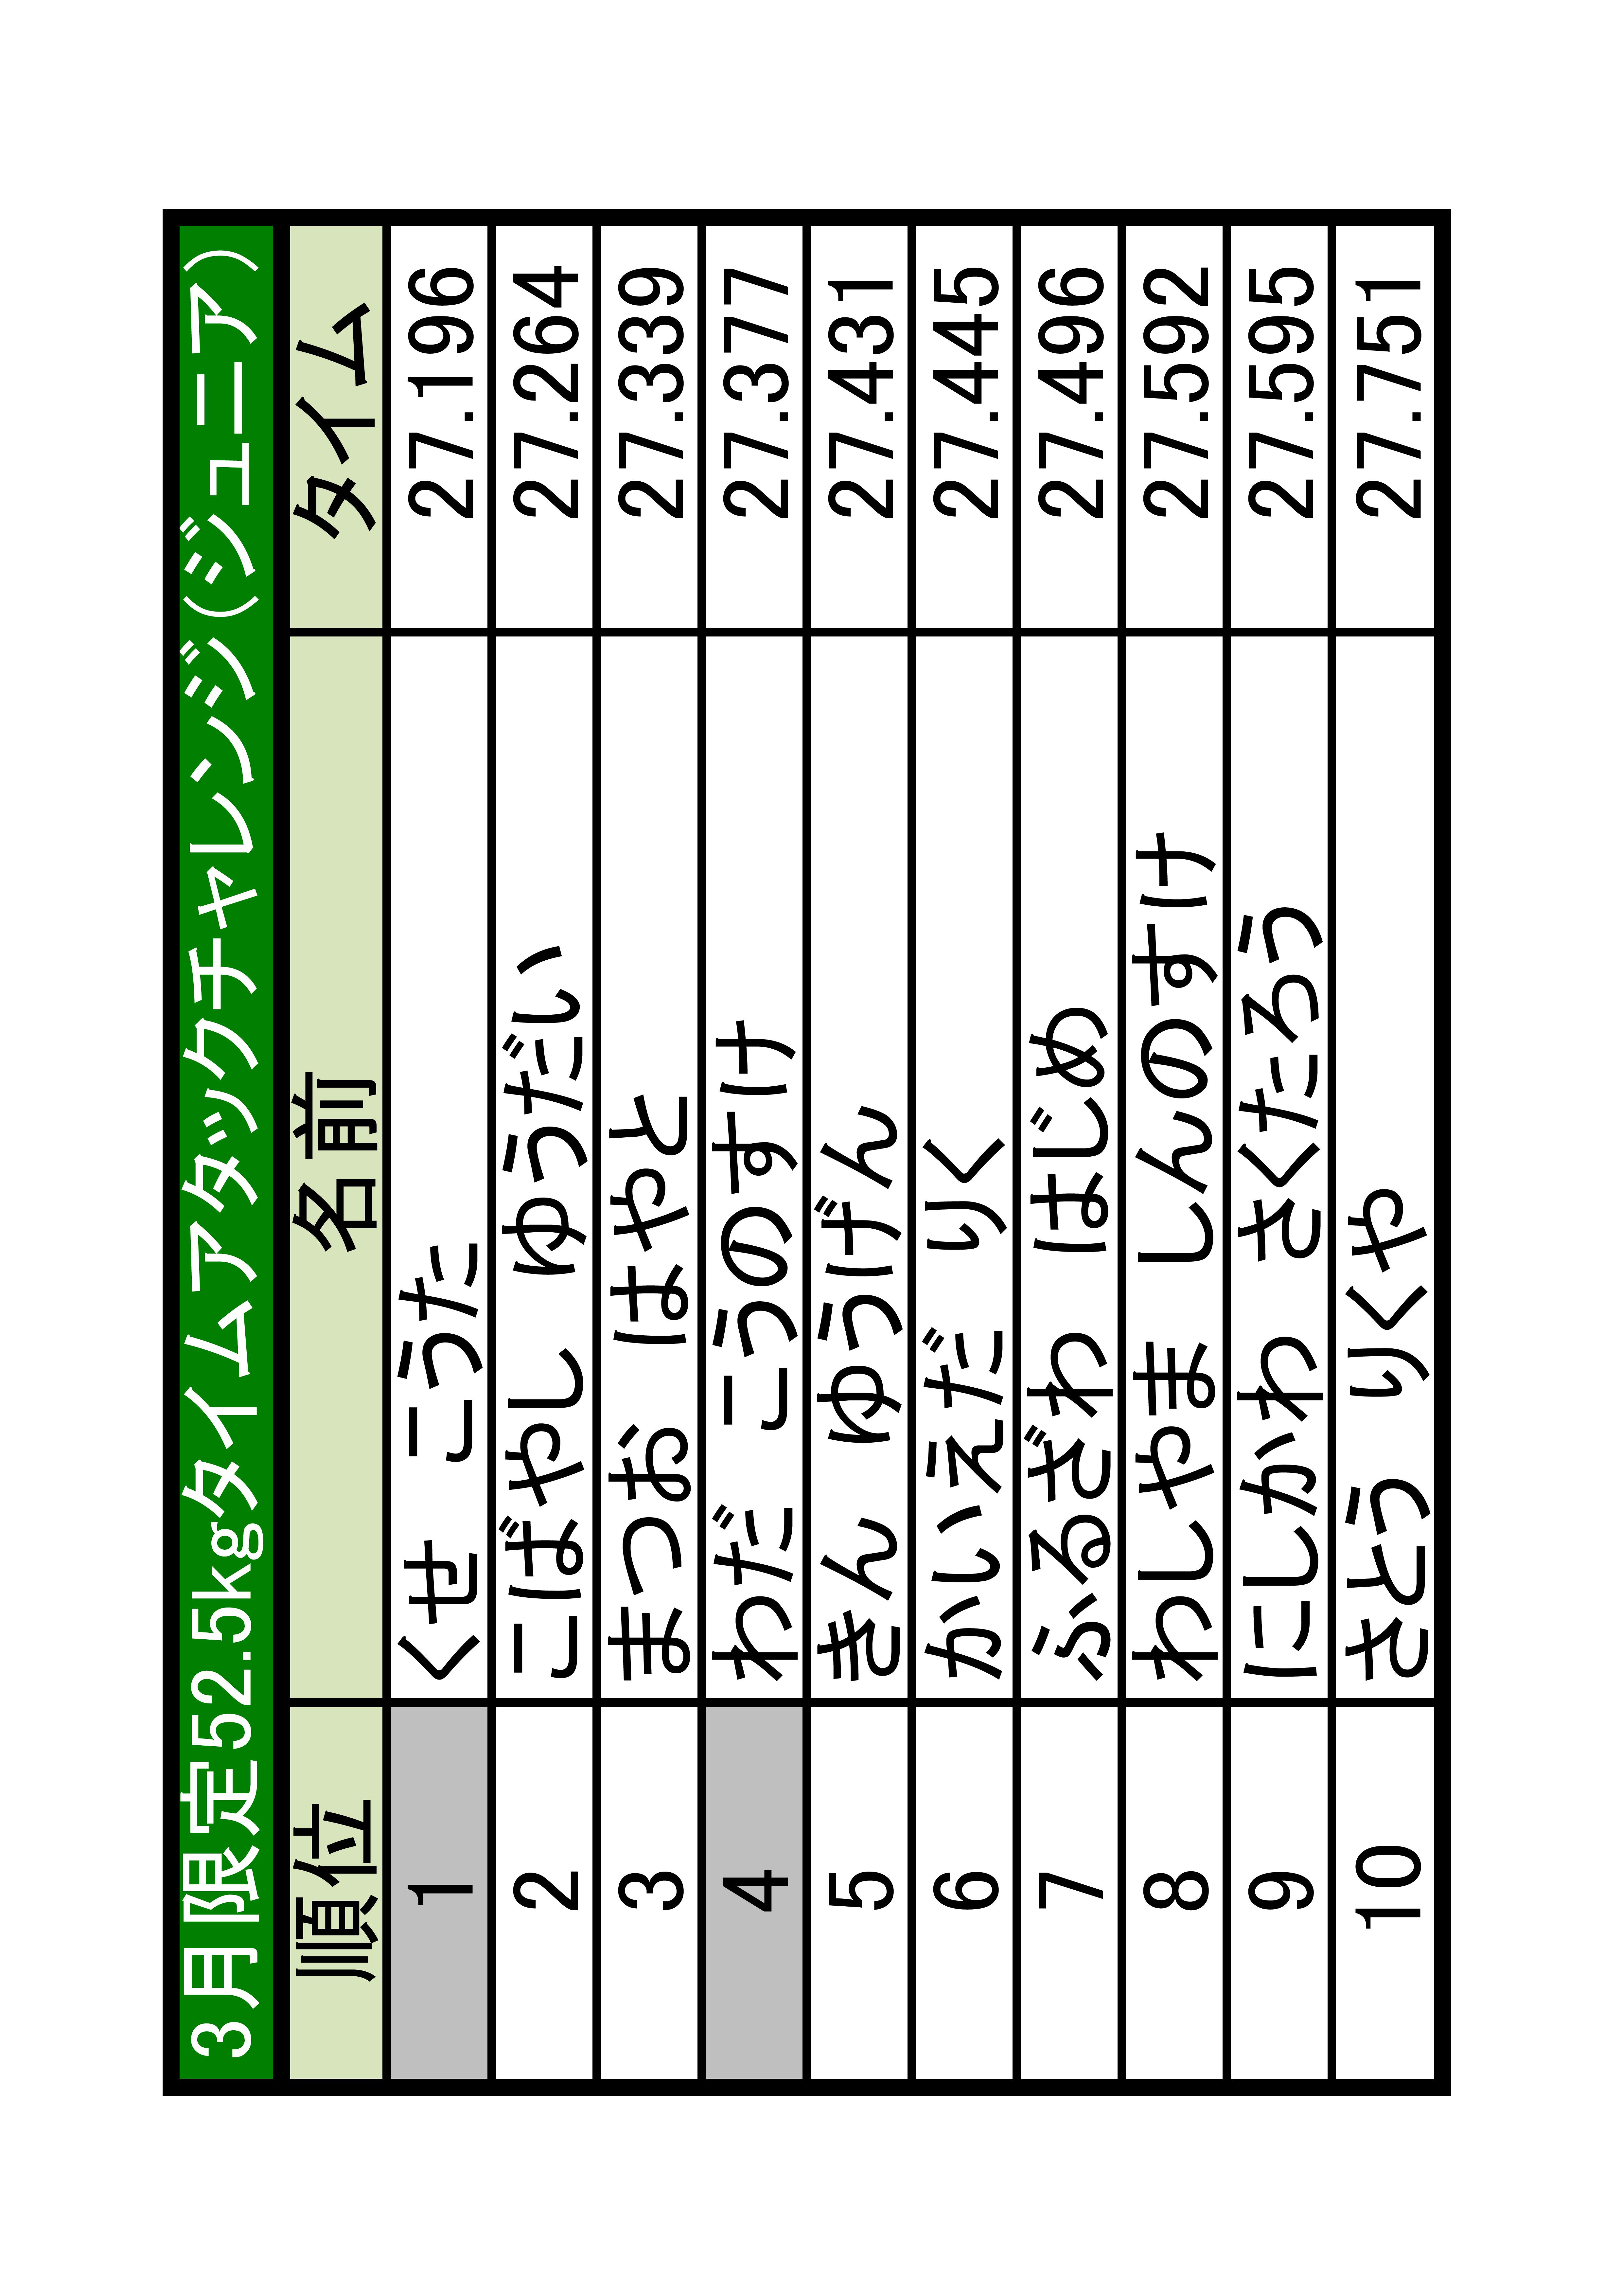 3月限定52.5kgタイムアタックチャレンジ（ジュニア）
順位 名前 タイム
1 くせ こうた 27.196
2 こばやし ゆうだい 27.264
3 まつお はやと 27.339
4 わだ こうのすけ 27.377
5 きん ゆうげん 27.431
6 かいえだ りく 27.445
7 ふるざわ はじめ 27.496
8 わしやま しんのすけ 27.592
9 にしかわ さくたろう 27.595
10 さとう りくや 27.751